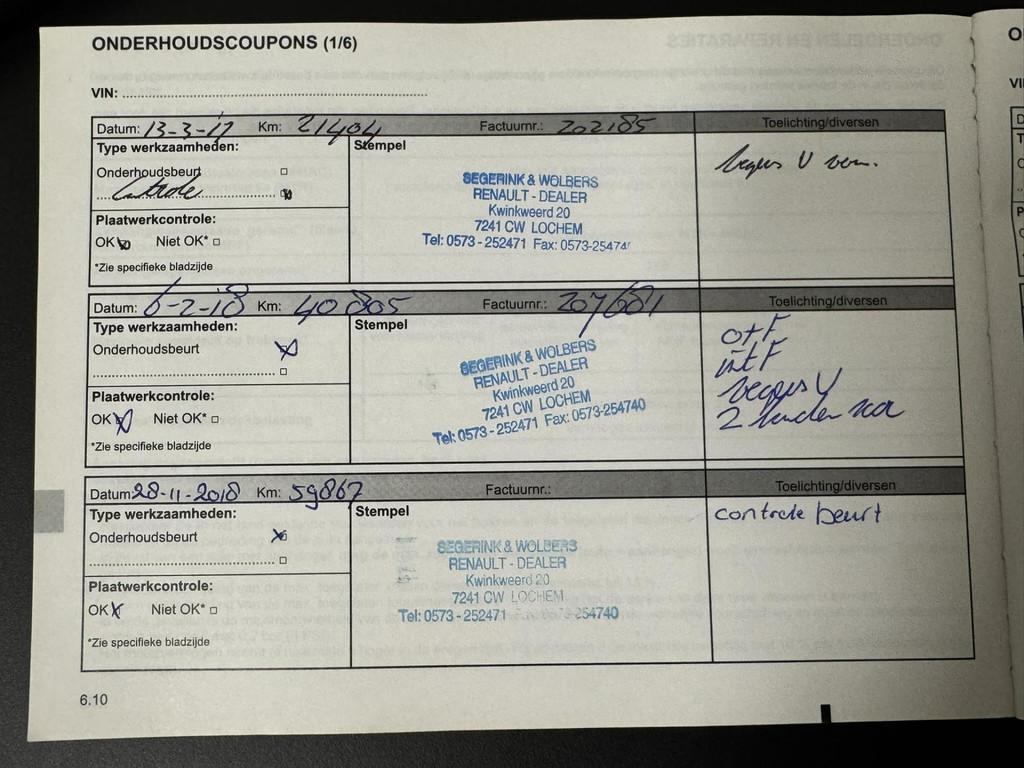 ONDERHOUDSCOUPONS (1/6)
VIN:
Datum: 13-3-17 Km: 21404 Factuurnr.: 202185 Toelichting/diversen
Type werkzaamheden: Stempel
Onderhoudsbeurt
Controle
Plaatwerkcontrole:
OK Niet OK*
*Zie specifieke bladzijde
SEGERINK & WOLBERS
RENAULT - DEALER
Kwinkweerd 20
7241 CW LOCHEM
Tel: 0573 - 252471 Fax: 0573-25474
U
Datum: 6-2-18 Km: 40805 Factuurnr.: 207681 Toelichting/diversen
Type werkzaamheden: Stempel
Onderhoudsbeurt
Plaatwerkcontrole:
OK Niet OK*
*Zie specifieke bladzijde
SEGERINK & WOLBERS
RENAULT - DEALER
Kwinkweerd 20
7241 CW LOCHEM
Tel: 0573 - 252471 Fax: 0573-254740
o+F
int F
U
2
Datum: 28-11-2018 Km: 59867 Factuurnr.: Toelichting/diversen
Type werkzaamheden: Stempel
Onderhoudsbeurt
Plaatwerkcontrole:
OK Niet OK*
*Zie specifieke bladzijde
SEGERINK & WOLBERS
RENAULT - DEALER
Kwinkweerd 20
7241 CW LOCHEM
Tel: 0573 - 252471 Fax: 0573-254740
controle beurt
6.10